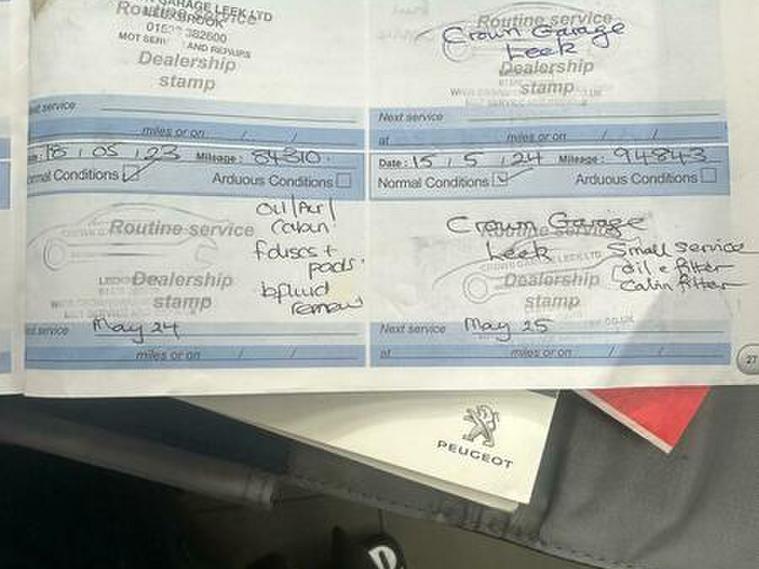 GARAGE LEEK LTD
Routine service
LEEKBROOK
382600
MOT AND REPAIRS
Dealership
stamp
Next service
miles or on / /
Routine service
Crown Garage
Leek
Dealership
stamp
Next service
at miles or on / /
18 / 05 / 23 Mileage: 84310
Normal Conditions ✓ Arduous Conditions
Routine service
Oil/Air/
Cabin
f discs +
pads
b fluid
renew
Dealership
stamp
service May 24
miles or on / /
Date: 15 / 5 / 24 Mileage: 94843
Normal Conditions ✓ Arduous Conditions
Crown Garage
Routine service
Leek
Small service
oil & filter
Cabin filter
CROWN GARAGE LEEK LTD
Dealership
stamp
Next service May 25
at miles or on / /
27
PEUGEOT